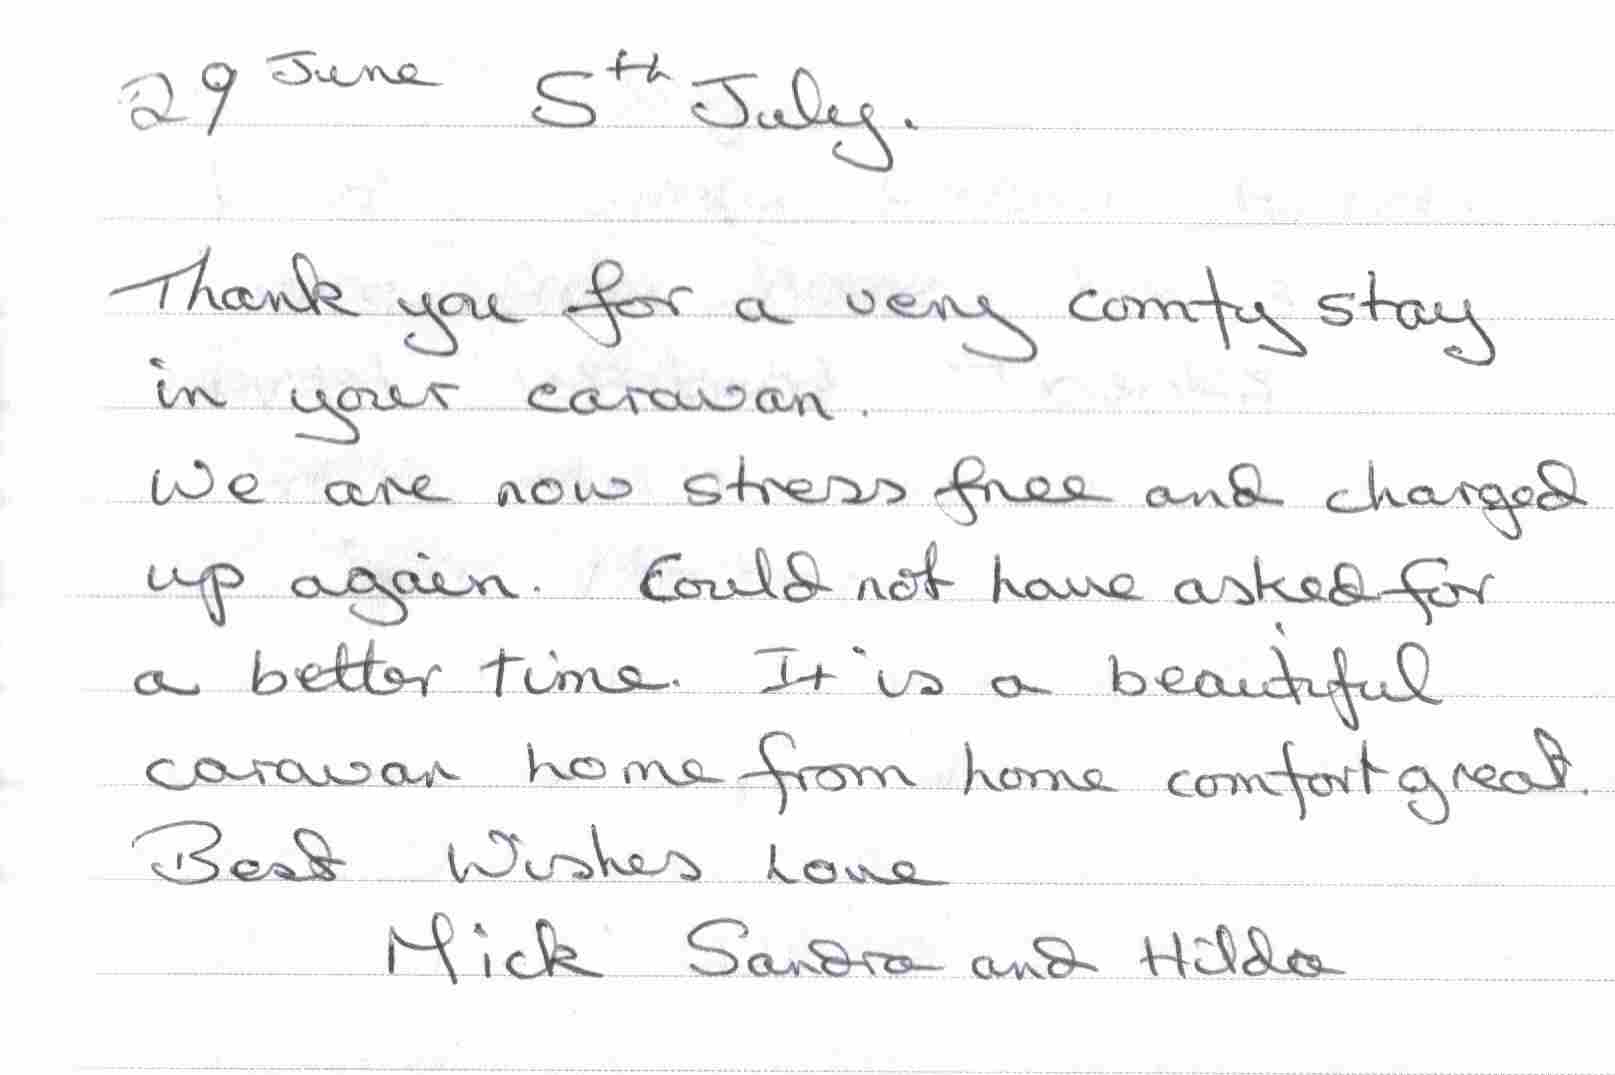 29 June 5th July.
Thank you for a very comfy stay
in your caravan.
We are now stress free and charged
up again. Could not have asked for
a better time. It is a beautiful
caravan home from home comfort great.
Best Wishes Love
Mick Sandra and Hilda